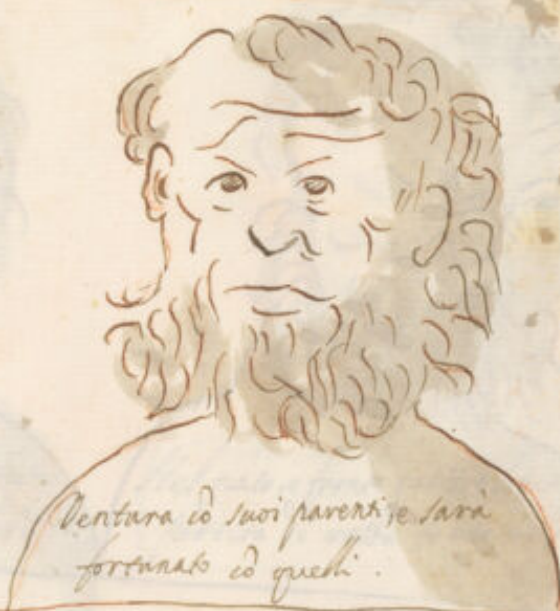 Ventura cõ suoi parenti, e sarà
fortunato cõ quelli.